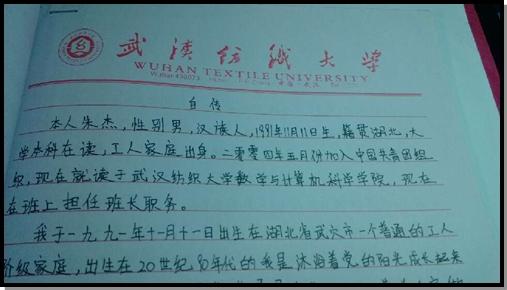 武汉纺织大学
WUHAN TEXTILE UNIVERSITY
Wuhan 430073 中国·武汉
自传
本人朱杰，性别男，汉族人，1991年11月11日生，籍贯湖北，大
学本科在读，工人家庭出身。二零零四年五月份加入中国共青团组
织，现在就读于武汉纺织大学数学与计算机科学学院，现在
在班上担任班长职务。
我于一九九一年十一月十一日出生在湖北省武穴市一个普通的工人
阶级家庭，出生在20世纪90年代的我是沐浴着党的阳光成长起来